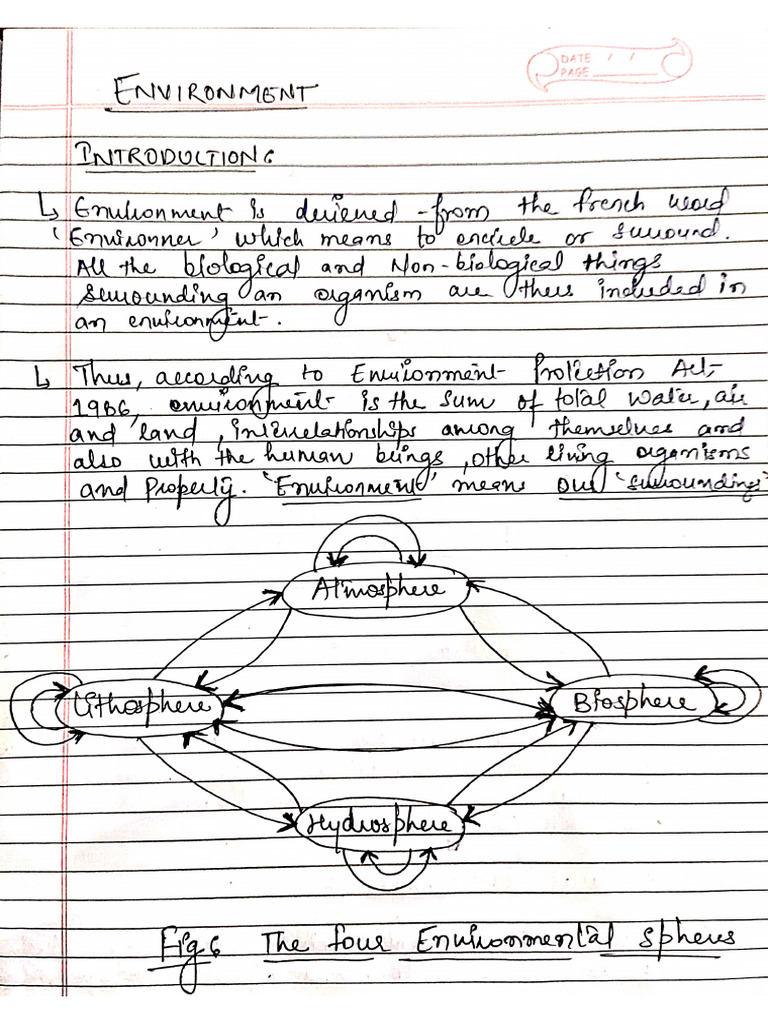 DATE / /
PAGE
ENVIRONMENT
INTRODUCTION:
↳ Environment is derived from the french word
'Environner' which means to encircle or surround.
All the biological and Non-biological things
surrounding an organism are thus included in
an environment.
↳ Thus, according to Environment Protection Act,
1986, environment is the sum of total water, air
and land, interrelationships among themselves and
also with the human beings, other living organisms
and Property. 'Environment' means our 'surroundings'
Atmosphere
Lithosphere
Biosphere
Hydrosphere
Fig: The four Environmental spheres